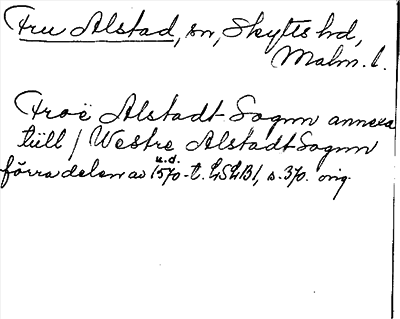 Fru Alstad, sn, Skytts hd,
Malm. l.
Froë Alstadt Sognn annexa
tüll / Westre Alstadt Sognn
u.d.
förra delen av 1570-t. LSLB1, s. 370. orig.